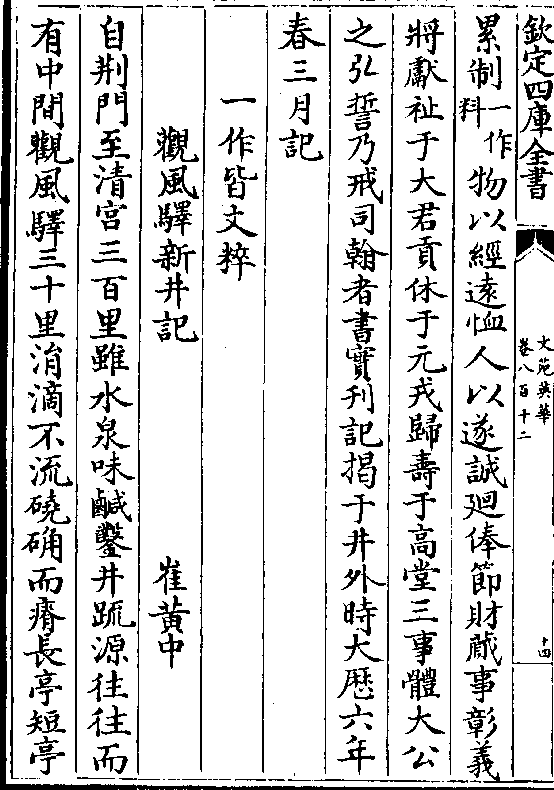 欽定四庫全書
文苑英華
卷八百十二
十四
累制一作料物以經遠恤人以遂誠廻俸節財蕆事彰義
將獻祉于大君貢休于元戎歸壽于高堂三事體大公
之弘誓乃戒司翰者書實刋記揭于井外時大歴六年
春三月記
一作皆文粹
觀風驛新井記 崔黄中
自荆門至清宫三百里雖水泉味鹹鑿井䟽源往往而
有中間觀風驛三十里涓滴不流磽确而瘠長亭短亭